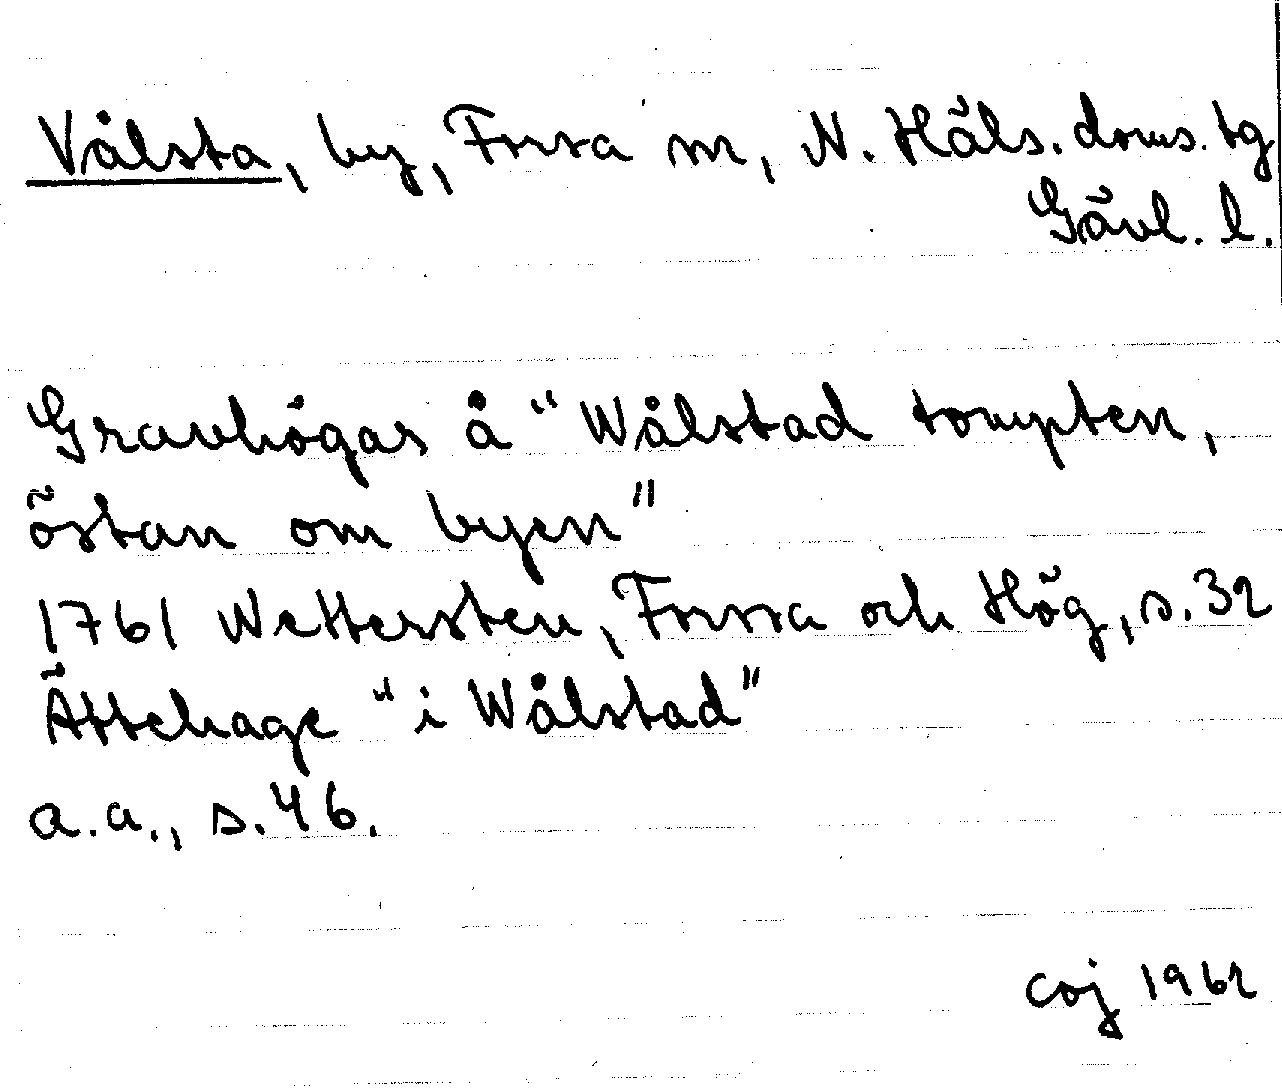 Vålsta, by, Forsa sn, N. Häls. doms. tg
Gävl. l.
Gravhögar å "Wålstad tompten,
östan om byen"
1761 Wettersten, Forssa och Hög, s. 32
Ättehage "i Wålstad"
a.a., s. 46.
coj 1962